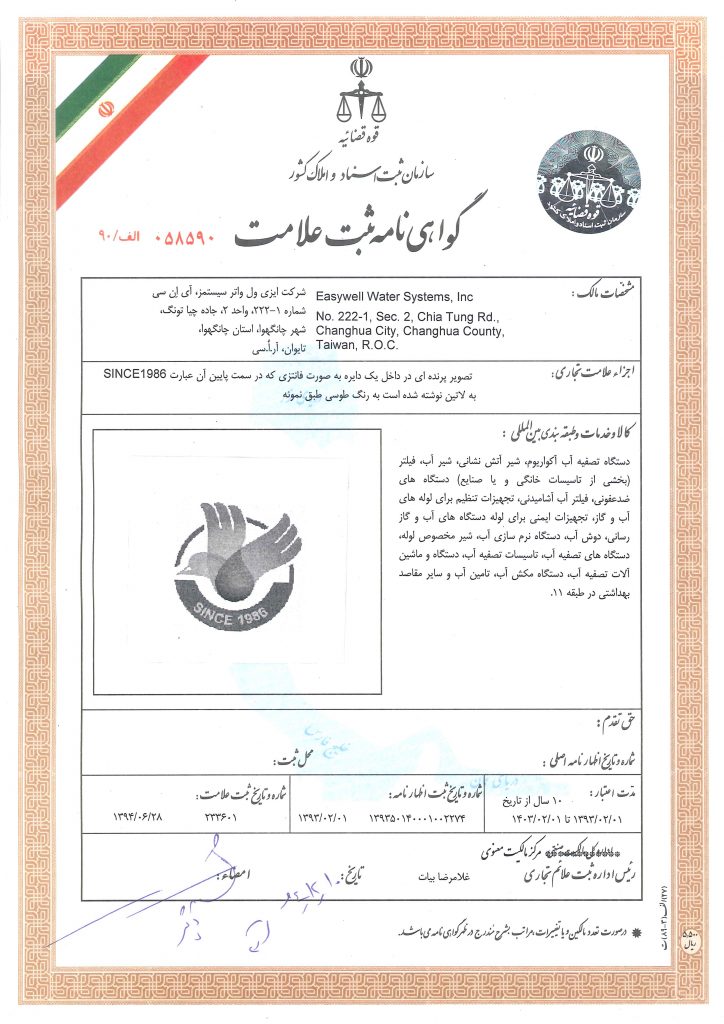 قوه قضائیه
سازمان ثبت اسناد و املاک کشور
قوه قضائیه
سازمان ثبت اسناد و املاک کشور
گواهی نامه ثبت علامت
۰۵۸۵۹۰ الف/۹۰
مشخصات مالک :
Easywell Water Systems, Inc
No. 222-1, Sec. 2, Chia Tung Rd.,
Changhua City, Changhua County,
Taiwan, R.O.C.
شرکت ایزی ول واتر سیستمز، آی اِن سی
شماره ۱-۲۲۲، واحد ۲، جاده چیا تونگ،
شهر چانگهوا، استان چانگهوا،
تایوان، آر.اُ.سی
اجزاء علامت تجاری :
تصویر پرنده ای در داخل یک دایره به صورت فانتزی که در سمت پایین آن عبارت SINCE1986
به لاتین نوشته شده است به رنگ طوسی طبق نمونه
کالا و خدمات و طبقه بندی بین المللی :
دستگاه تصفیه آب آکواریوم، شیر آتش نشانی، شیر آب، فیلتر
(بخشی از تاسیسات خانگی و یا صنایع) دستگاه های
ضدعفونی، فیلتر آب آشامیدنی، تجهیزات تنظیم برای لوله های
آب و گاز، تجهیزات ایمنی برای لوله دستگاه های آب و گاز
رسانی، دوش آب، دستگاه نرم سازی آب، شیر مخصوص لوله،
دستگاه های تصفیه آب، تاسیسات تصفیه آب، دستگاه و ماشین
آلات تصفیه آب، دستگاه مکش آب، تامین آب و سایر مقاصد
بهداشتی در طبقه ۱۱.
SINCE 1986
حق تقدم :
شماره و تاریخ اظهار نامه اصلی :
محل ثبت :
خلیج فارس
دریای عمان
مدت اعتبار :
۱۰ سال از تاریخ
۱۳۹۳/۰۲/۰۱ تا ۱۴۰۳/۰۲/۰۱
شماره و تاریخ ثبت اظهار نامه :
۱۳۹۳۵۰۱۴۰۰۰۱۰۰۲۲۷۴
۱۳۹۳/۰۲/۰۱
شماره و تاریخ ثبت علامت :
۲۳۳۶۰۱
۱۳۹۴/۰۶/۲۸
مرکز مالکیت معنوی
رئیس اداره ثبت علائم تجاری
غلامرضا بیات
تاریخ :
امضاء :
درصورت تعدد مالکین و یا تغییرات، مراتب بشرح مندرج در ظهر گواهی نامه می باشد.
۵,۵۰۰
ریال